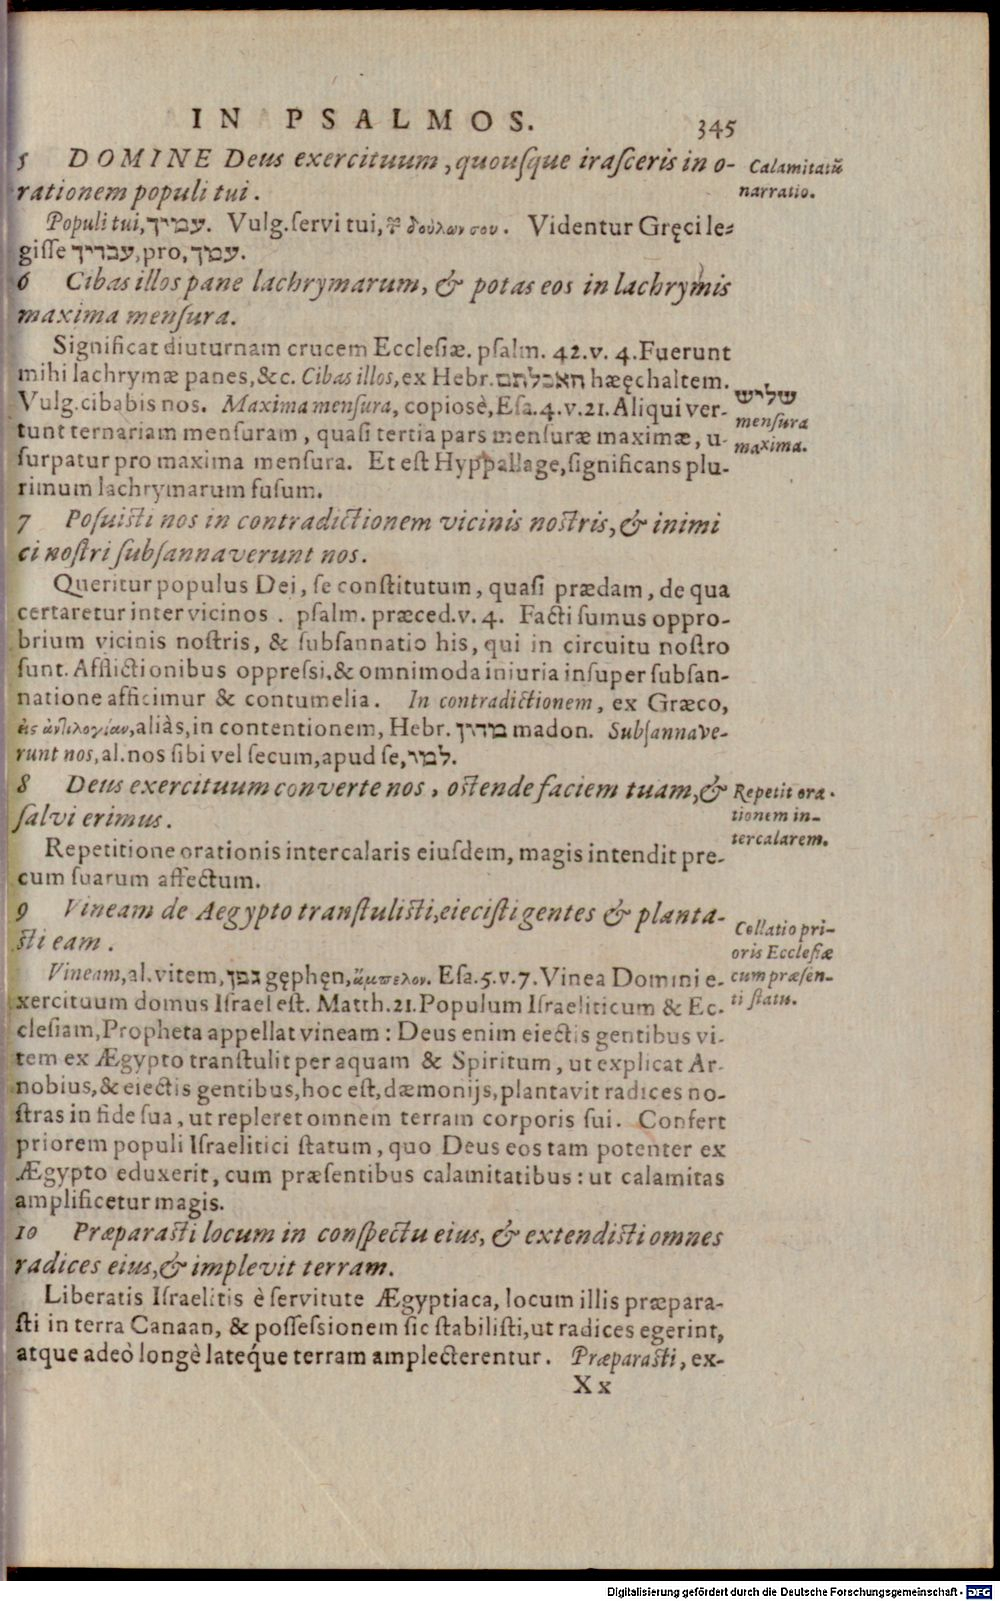 IN PSALMOS. 345
5 DOMINE Deus exercituum, quouſque iraſceris in o-
rationem populi tui.
Calamitatũ
narratio.
Populi tui, עמיך. Vulg. ſervi tui, δούλων σου. Videntur Gręci le-
giſſe עבדיך, pro, עמך.
6 Cibas illos pane lachrymarum, & potas eos in lachrymis
maxima menſura.
Significat diuturnam crucem Eccleſiæ. pſalm. 42. v. 4. Fuerunt
mihi lachrymæ panes, &c. Cibas illos, ex Hebr. האכלתם hæęchaltem.
Vulg. cibabis nos. Maxima menſura, copiosè, Eſa. 4. v. 21. Aliqui ver-
tunt ternariam menſuram, quaſi tertia pars menſuræ maximæ, u-
ſurpatur pro maxima menſura. Et eſt Hyppallage, ſignificans plu-
rimum lachrymarum fuſum.
שליש
menſura
maxima.
7 Poſuiſti nos in contradictionem vicinis noſtris, & inimi
ci noſtri ſubſannaverunt nos.
Queritur populus Dei, ſe conſtitutum, quaſi prædam, de qua
certaretur inter vicinos. pſalm. præced. v. 4. Facti ſumus oppro-
brium vicinis noſtris, & ſubſannatio his, qui in circuitu noſtro
ſunt. Afflictionibus oppreſsi, & omnimoda iniuria inſuper ſubſan-
natione afficimur & contumelia. In contradictionem, ex Græco,
εἰς ἀντιλογίαν, aliàs, in contentionem, Hebr. מדון madon. Subſannave-
runt nos, al. nos ſibi vel ſecum, apud ſe, למו.
8 Deus exercituum converte nos, oſtende faciem tuam, &
ſalvi erimus.
Repetit ora-
tionem in-
tercalarem.
Repetitione orationis intercalaris eiuſdem, magis intendit pre-
cum ſuarum affectum.
9 Vineam de Aegypto tranſtuliſti, eieciſti gentes & planta-
ſti eam.
Collatio pri-
oris Eccleſiæ
cum præſen-
ti ſtatu.
Vineam, al. vitem, גפן gęphęn, ἄμπελον. Eſa. 5. v. 7. Vinea Domini e-
xercituum domus Iſrael eſt. Matth. 21. Populum Iſraeliticum & Ec-
cleſiam, Propheta appellat vineam: Deus enim eiectis gentibus vi-
tem ex Ægypto tranſtulit per aquam & Spiritum, ut explicat Ar-
nobius, & eiectis gentibus, hoc eſt, dæmonijs, plantavit radices no-
ſtras in fide ſua, ut repleret omnem terram corporis ſui. Confert
priorem populi Iſraelitici ſtatum, quo Deus eos tam potenter ex
Ægypto eduxerit, cum præſentibus calamitatibus: ut calamitas
amplificetur magis.
10 Præparaſti locum in conſpectu eius, & extendiſti omnes
radices eius, & implevit terram.
Liberatis Iſraelitis è ſervitute Ægyptiaca, locum illis præpara-
ſti in terra Canaan, & poſſeſsionem ſic ſtabiliſti, ut radices egerint,
atque adeò longè lateq́ue terram amplecterentur. Præparaſti, ex-
Xx
Digitalisierung gefördert durch die Deutsche Forschungsgemeinschaft - DFG